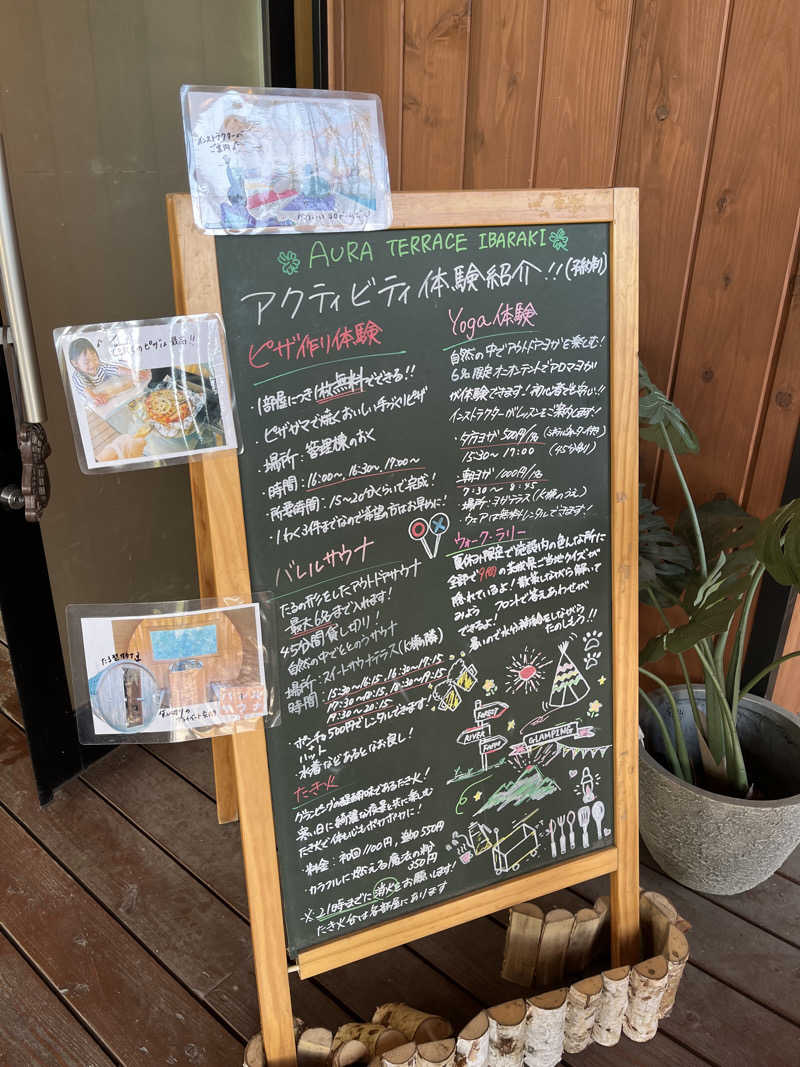 インストラクターが
ご案内♪
AURA TERRACE IBARAKI
アクティビティ体験紹介!!(予約制)
ピザ作り体験
・1部屋につき1枚無料でできる!!
・ピザガマで焼くおいしい手づくりピザ
・場所:管理棟のおく
・時間:16:00~, 16:30~, 17:00~
・所要時間:15~20分くらいで完成!
・1わく3件までなので希望の方はお早めに!
バレルサウナ
たるの形をしたアウトドアサウナ
最大6名まで入れます!
45分間貸し切り!
自然の中でととのうサウナ
場所:スイートサウナテラス(K棟の隣)
時間:15:30~16:15, 16:30~17:15
17:30~18:15, 18:30~19:15
19:30~20:15
・ポンチョ500円でレンタルできます!
ハット
水着などあるとなお良し!
たき火
グランピングの醍醐味であるたき火!
寒い日に綺麗な夜景と共に楽しむ
たき火で体も心もポカポカに!
・料金:初回1100円, 追加550円
・カラフルに燃える魔法の粉
350円
※21時までに消火をお願いします!
たき火台は各部屋にあります
Yoga体験
自然の中でアウトドアヨガを楽しむ!
6名限定オープンテントでアロマヨガ
が体験できます!初心者も安心!!
インストラクターがレッスンをご案内します!
・夕方ヨガ 500円/名
15:30~17:00
(45分制)
・朝ヨガ 1000円/名
7:30~8:45
場所:ヨガテラス(K棟のうえ)
・ウェアは無料レンタルできます!
ウォーク・ラリー
夏休み限定で施設内の色んな所に
全部で9問の茨城県ご当地クイズが
隠れているよ!散策しながら解いて
みよう フロントで答えあわせが
できるよ!
暑いので水分補給をしながら
たのしもう!!
FOREST
RIVER
FARM
GLAMPING
のピザは最高!!
たる型
バレルサウナ